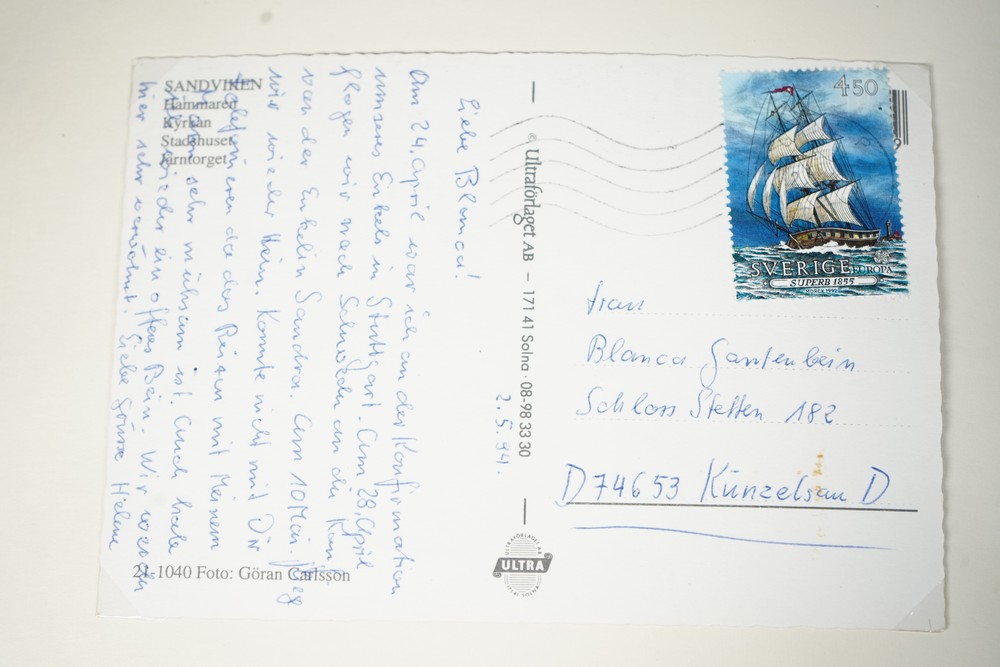 SANDVIKEN
Hammaren
Kyrkan
Stadshuset
Järntorget
2.5.94.
Liebe Blanca!
Am 24. April war ich an der Konfirmation
unseres Enkels in Stuttgart. Am 28 April
flogen wir nach Schweden an die Konf.
von der Enkelin Sandra. Am 10 Mai. fleg
wir wieder Heim. Konnte nicht mit Dir
telefonieren da das Reisen mit Meinem
sehr mühsam ist. Auch habe
wieder ein offens Bein. Wir werden
hier sehr verwöhnt. Liebe Grüsse Helene
21-1040 Foto: Göran Carlsson
© Ultraförlaget AB – 171 41 Solna · 08-98 33 30
ULTRAFÖRLAGET AB
ULTRA
171 41 SOLNA
450
SVERIGE EUROPA
SUPERB 1855
9
Frau
Blanca Gantenbein
Schloss Stetten 182
D 74653 Künzelsau D